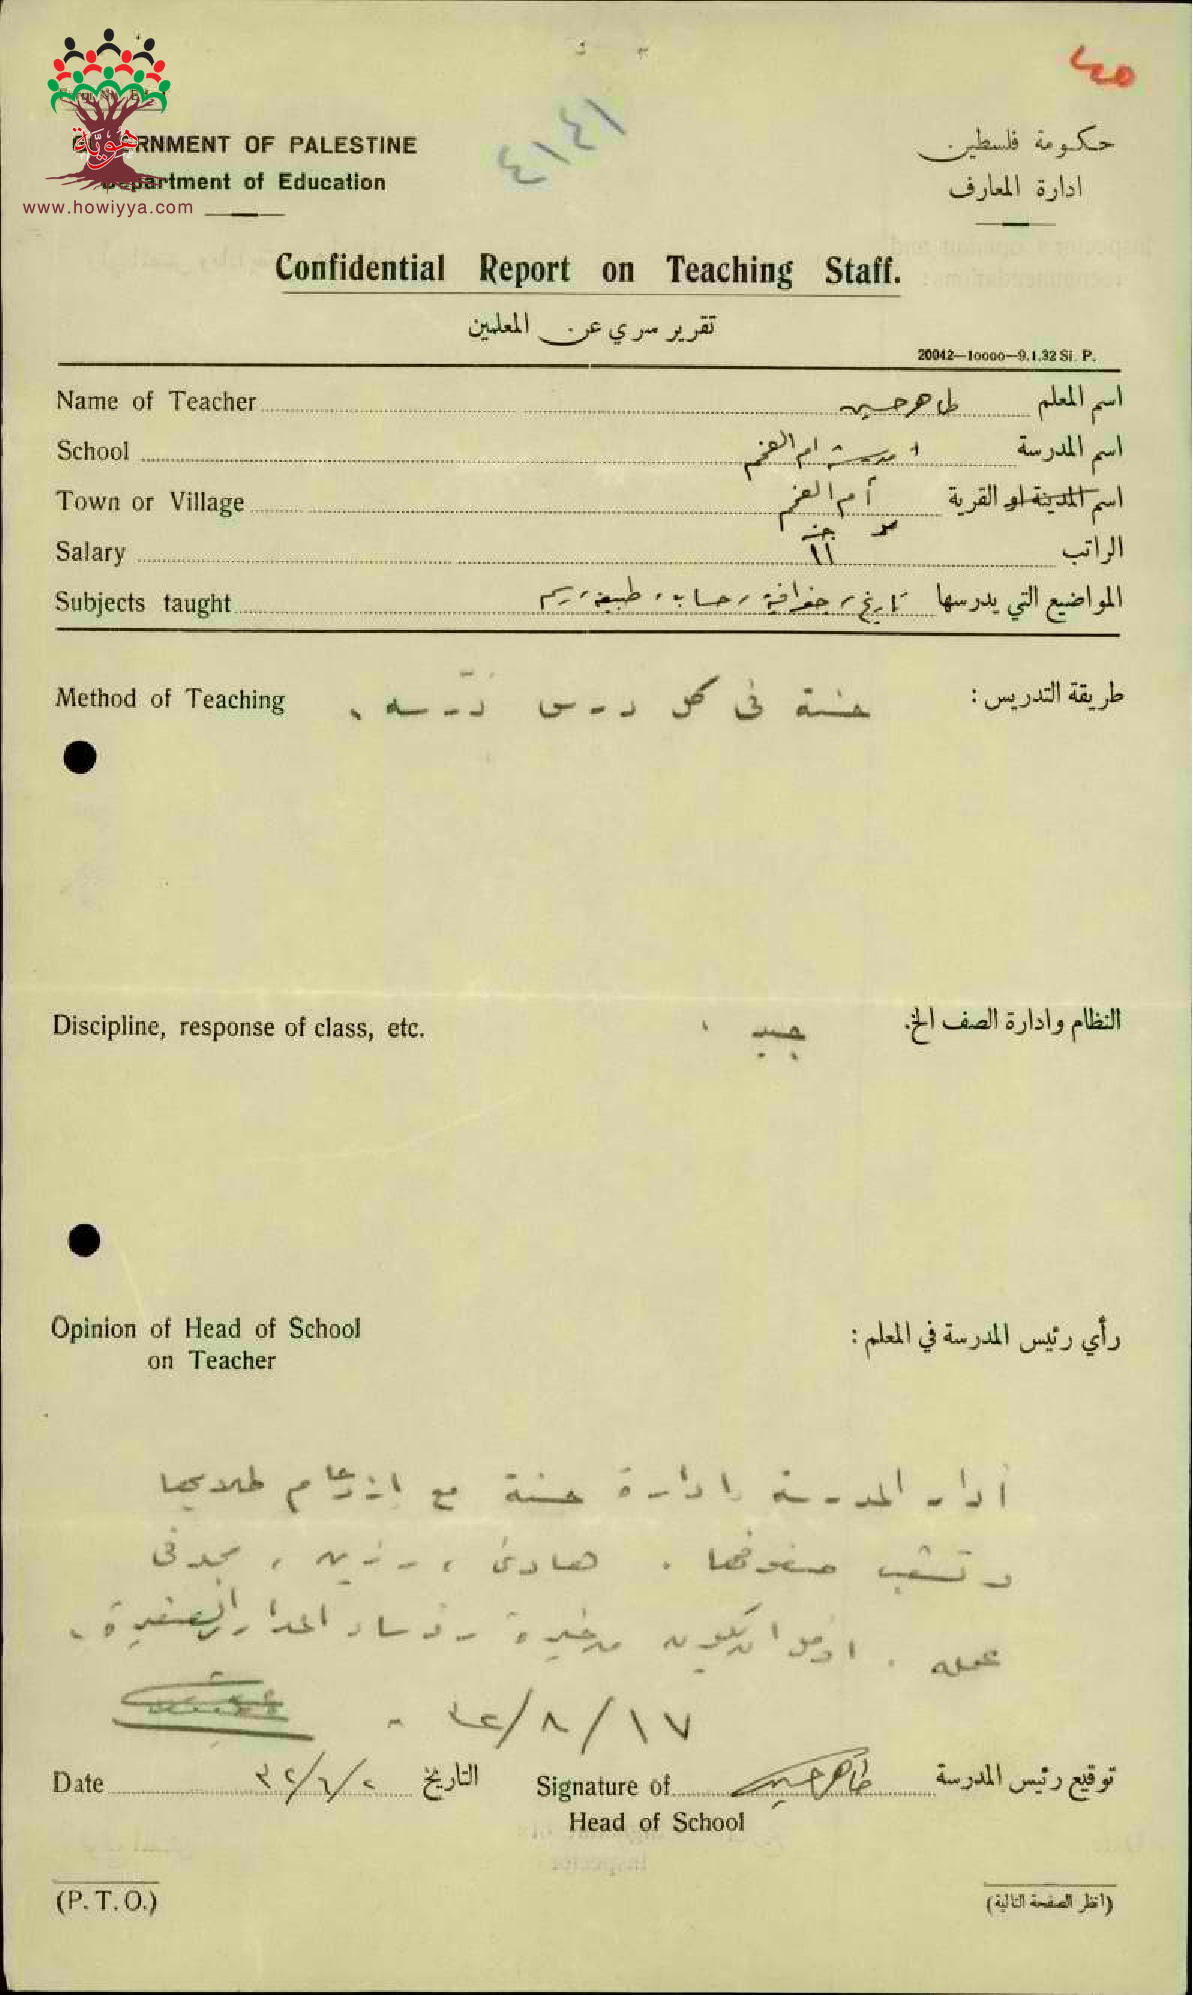 ٤٥
٤١٤١
هوية
www.howiyya.com
GOVERNMENT OF PALESTINE
Department of Education
حكومة فلسطين
ادارة المعارف
Confidential Report on Teaching Staff.
تقرير سري عن المعلمين
20042—10000—9.1.32 Si. P.
Name of Teacher طاهر حسين اسم المعلم
School مدرسة ام الفحم اسم المدرسة
Town or Village أم الفحم اسم المدينة او القرية
Salary ١١ الراتب
Subjects taught تاريخ، جغرافية، حساب، طبيعة، رسم المواضيع التي يدرسها
Method of Teaching حسنة في كل درس درّسه. طريقة التدريس :
Discipline, response of class, etc. جيد. النظام وادارة الصف الخ.
Opinion of Head of School
on Teacher
رأي رئيس المدرسة في المعلم :
أدار المدرسة ادارة حسنة مع ازدحام طلابها
وتشعب صفوفها. هادئ، رزين، مجد في
عمله. ان يكون من خيرة رؤساء
١٧/٨/٣٢
Date ٢/٦/٣٢ التاريخ Signature of طاهر حسين توقيع رئيس المدرسة
Head of School
(P. T. O.)
(انظر الصفحة التالية)